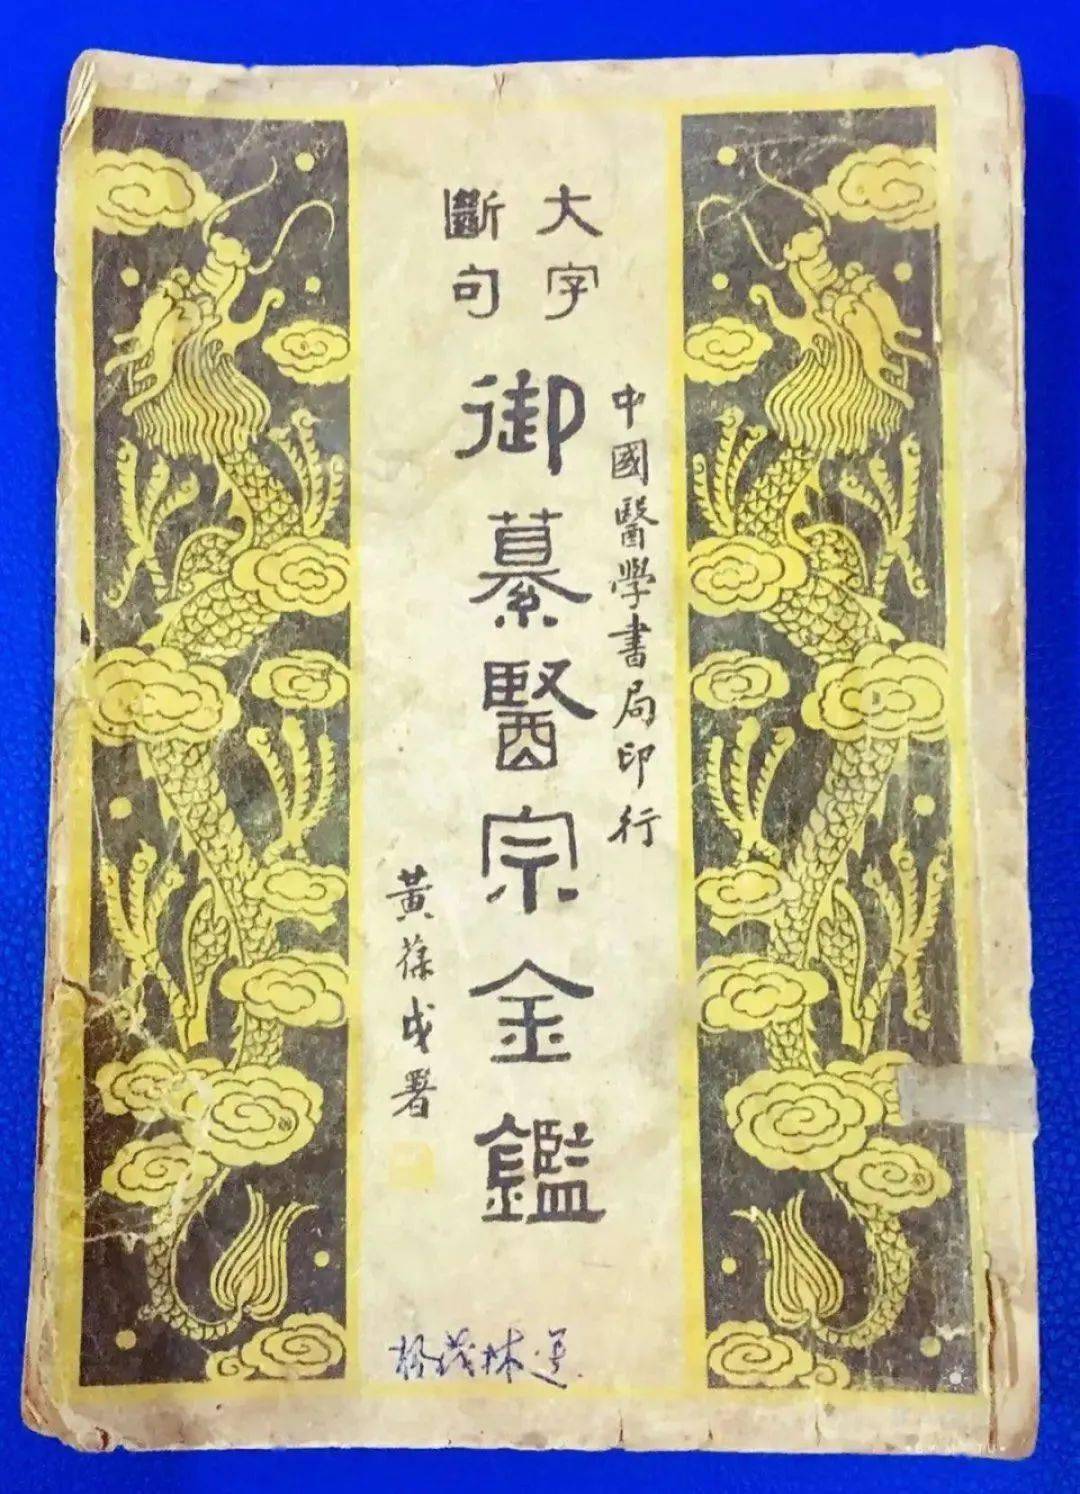 大字
斷句
中國醫學書局印行
御纂醫宗金鑑
黃葆戉署